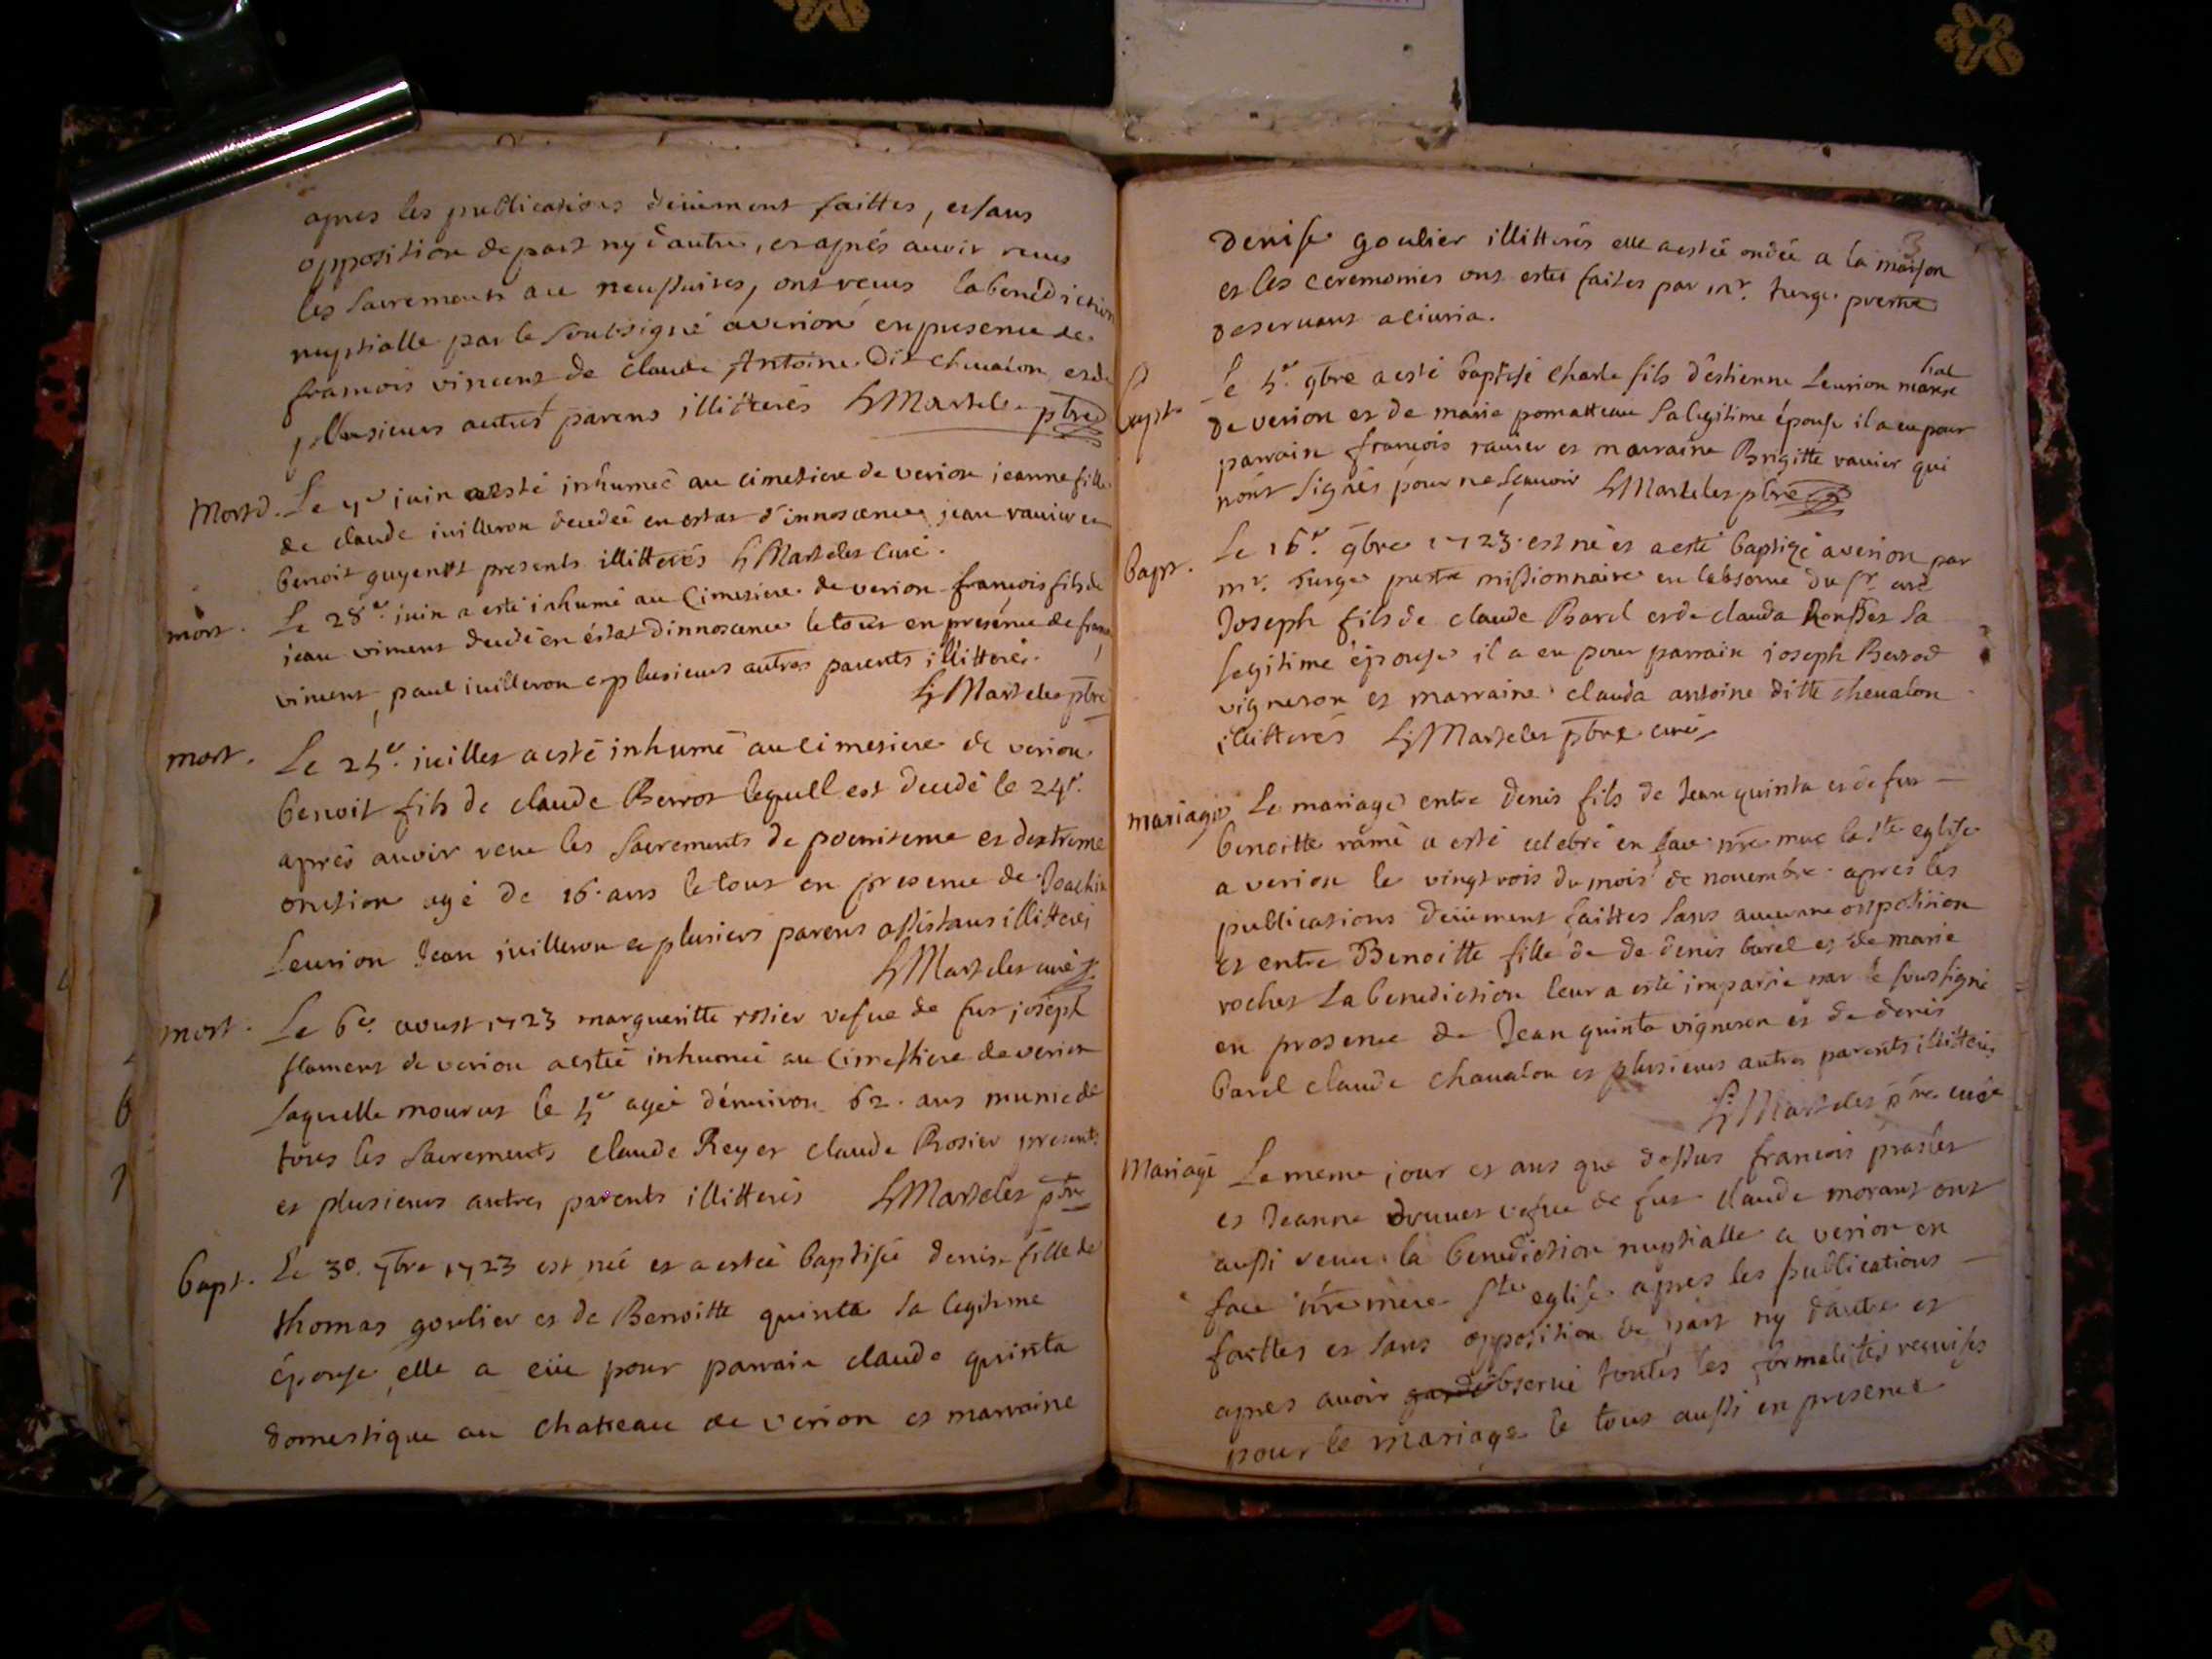 apres les publications deüement faittes, et sans
opposition de part ny d'autre, et aprés auoir receus
les sacrements au neussaires, ont receus la benediction
nuptialle par le soubsigné a verion en presence de
francois vincent de claude Antoine Dit chevalon et de
plusieurs autres parens illitterés Martelet ptre
Mort. Le juin a esté inhumeé au cimetiere de verion jeanne fille
de claude iuilleron decedeé en estat d'innoscence jean ravier et
benoit guyenot presents illitterés Martelet Curé.
mort. Le 28e juin a esté inhumé au Cimetiere de verion francois fils de
jean vincent decedé en éstat d'innoscence le tout en présence de franc
vincent, paul iuilleron et plusieurs autres parents illitterés.
Martelet ptre
mort. Le 25e. juillet a esté inhumé au cimetiere de verion
benoit fils de claude Berrot lequell est decedé le 24e.
aprés auoir receu les sacrements de poenitence et d'extreme
onction agé de 16. ans le tout en presence de Joachin
Leurion Jean juilleron et plusieurs parens assistans illitterés
Martelet curé
mort. Le 6e. aoust 1723 margueritte rosier vefue de fut joseph
flament de verion a estée inhumeé au cimestiere de verion
laquelle mourut le 5e ageé d'enuiron 62. ans munie de
tous les sacrements claude Reyer claude Rosier presents
et plusieurs autres parents illitterés Martelet ptre
bapt. Le 30. 7bre 1723 est neé et a esteé baptisée denise fille de
thomas goulier et de Benoitte quinta sa legitime
épouse, elle a eüe pour parrain claude quinta
domestique au chatteau de verion et marraine
denise goulier illitterés elle a estéé ondéé a la maison
et les ceremonies ont estéé faites par mr. turge prestre
deservant a
Bapt. Le 5e. 9bre a esté baptisé Charle fils d'estienne Leurion mareschal
de verion et de marie pomatteau sa legitime épouse il a eu pour
parrain francois ravier et marraine Brigitte ravier qui
n'ont signés pour ne scauoir Martelet ptre
bapt. Le 16e. 9bre 1723. est né et a esté baptizé a verion par
mr. turge prestre missionnaire en l'absence du sr. curé
Joseph fils de claude Barel et de clauda sa
legitime épouse il a eu pour parrain joseph Berrod
vigneron et marraine clauda antoine ditte chevalon
illitterés Martelet ptre curé
mariage Le mariage entre denis fils de Jean quinta et de fut
benoitte ramé a esté celebré en face nre mere la ste eglise
a verion le vingt rois du mois de nouembre apres les
publications deüement faittes sans aucune opposition
et entre Benoitte fille de de denis barel et de marie
rochet La benediction leur a esté impartie par le soussigné
en presence de Jean quinta vigneron et de denis
barel claude chavalon et plusieurs autres parents illitterés
Martelet ptre curé
Mariage Le meme jour et ans que dessus francois praslet
et Jeanne vefue de fut claude morant ont
aussi receu la benediction nuptialle a verion en
face nre mere ste eglise apres les publications
faittes et sans opposition de part ny d'autre et
apres auoir observé toutes les formalités requises
pour le mariage le tout aussi en presence